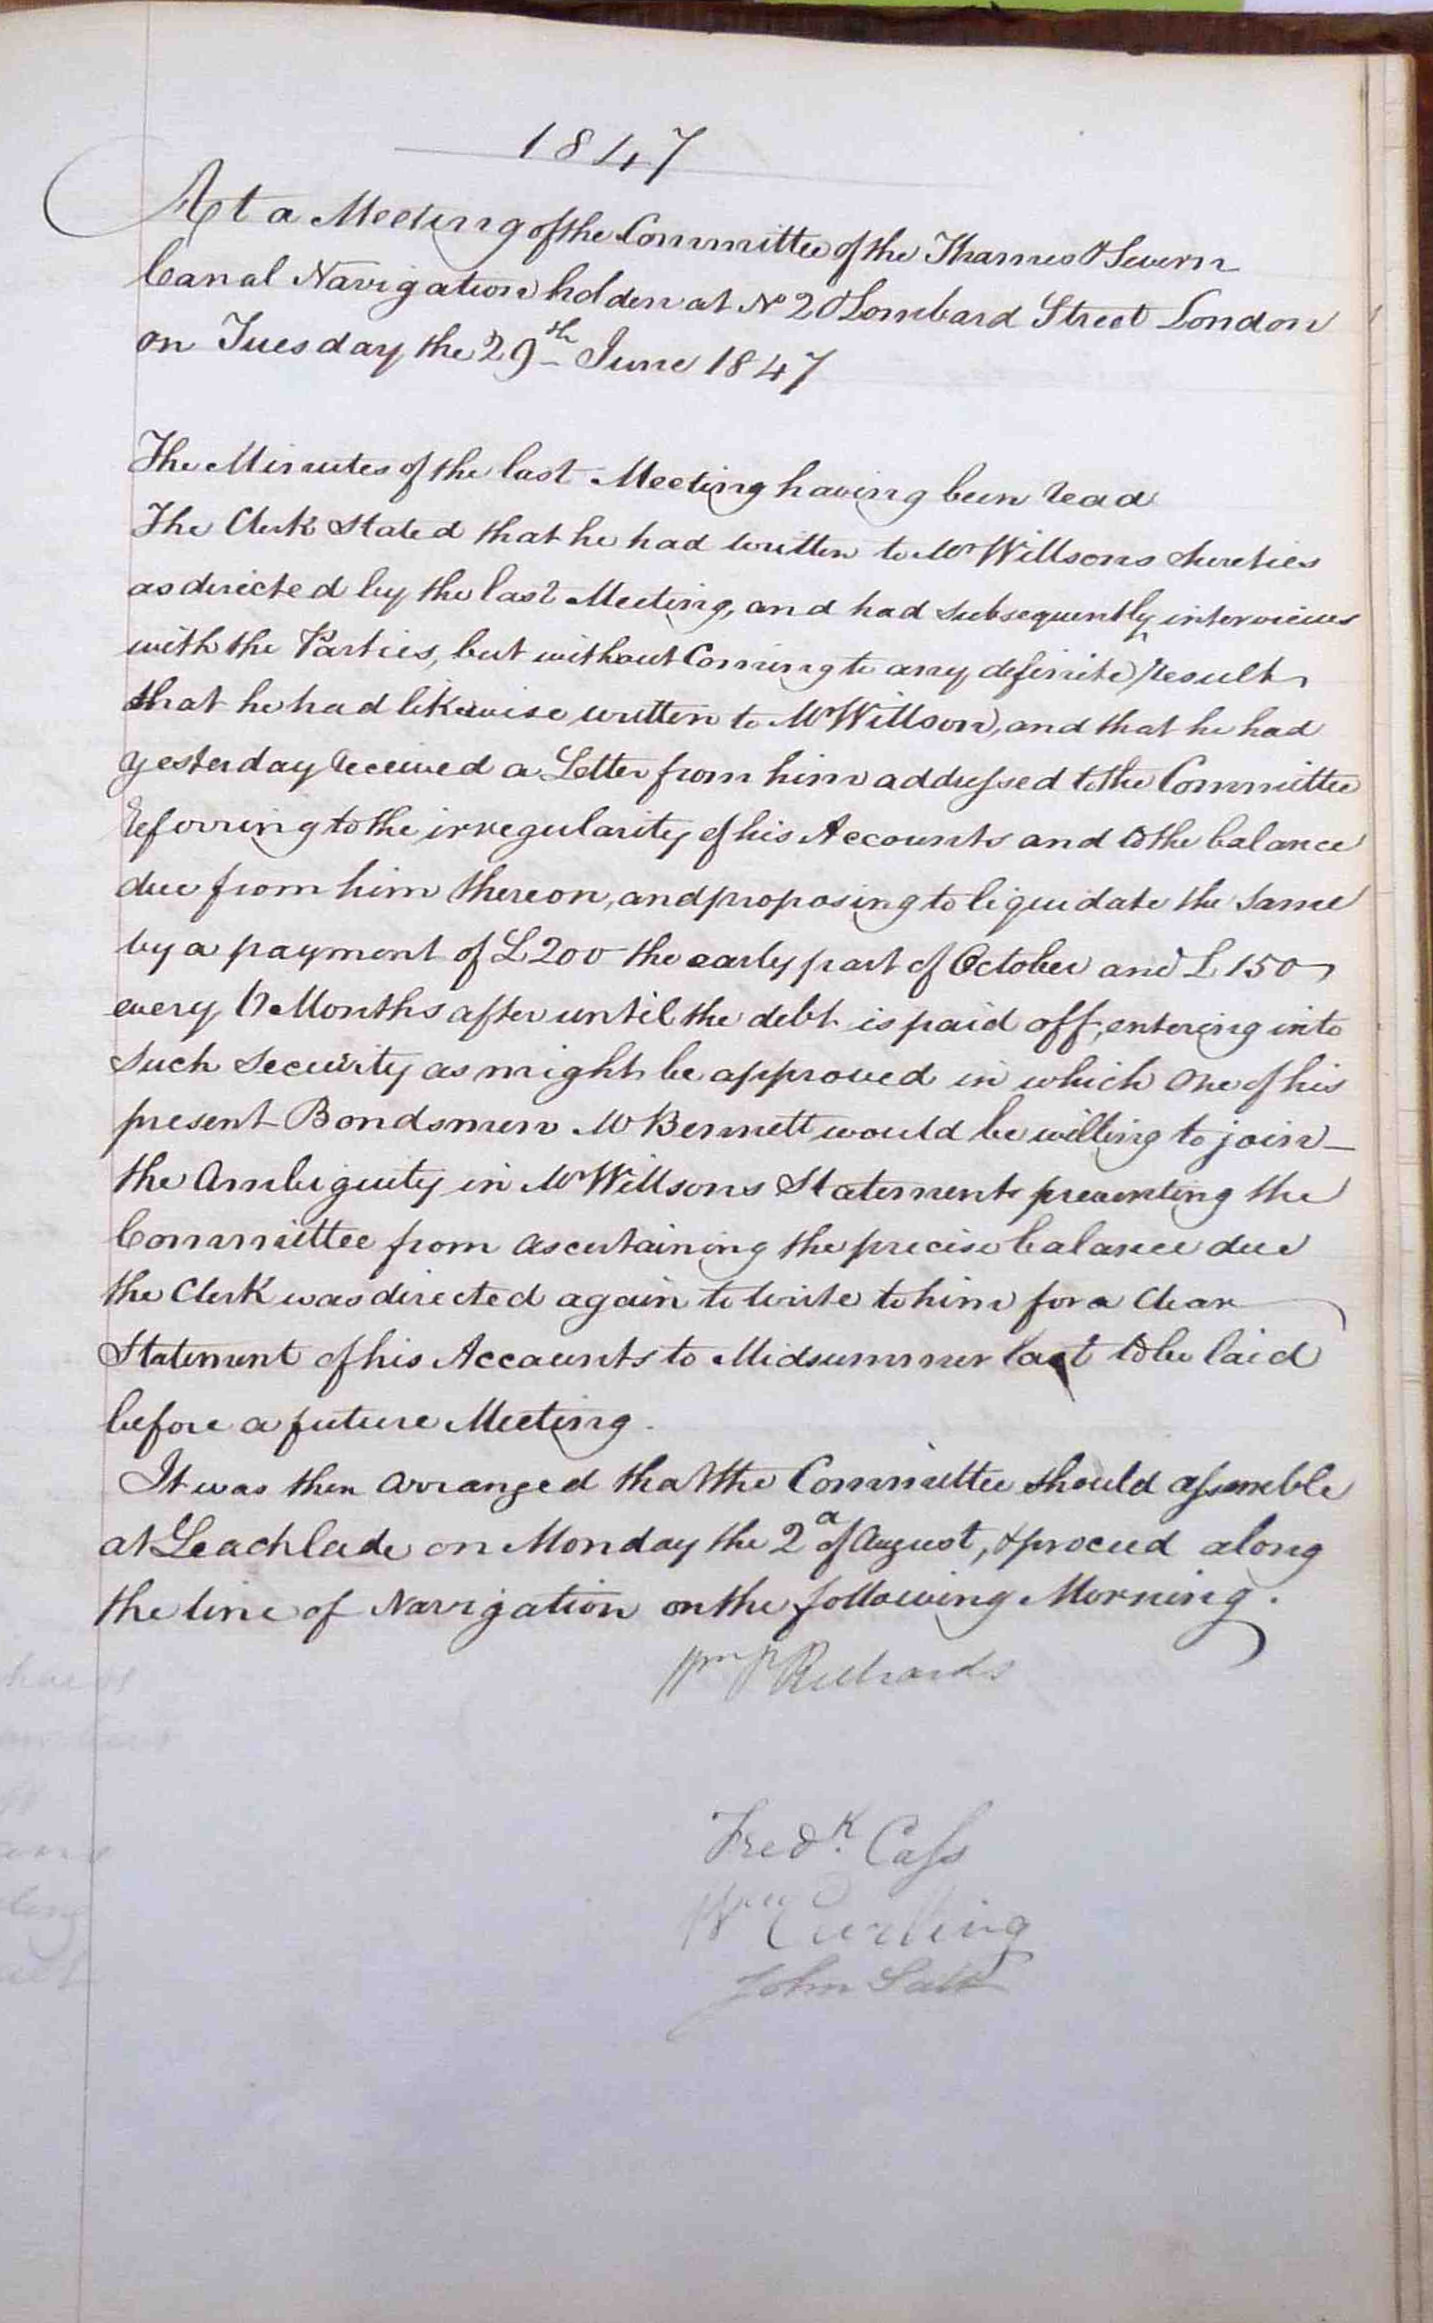 1847
At a Meeting of the Committee of the Thames & Severn
Canal Navigation holden at No 20 Lombard Street London
on Tuesday the 29th June 1847
The Minutes of the last Meeting having been read
The Clerk Stated that he had written to Mr Willsons Sureties
as directed by the last Meeting, and had subsequently interviews
with the Parties, but without Coming to any definite result
that he had likewise written to Mr Willson, and that he had
yesterday received a Letter from him addressed to the Committee
referring to the irregularity of his Accounts and to the balance
due from him thereon, and proposing to liquidate the same
by a payment of £200 the early part of October and £150
every Months after until the debt is paid off, entering into
such Security as might be approved in which One of his
present Bondsmen Mr Bennett would be willing to join—
the Ambiguity in Mr Willsons Statement preventing the
Committee from ascertaining the precise balance due
the Clerk was directed again to write to him for a Clear
Statement of his Accounts to Midsummer last to be laid
before a future Meeting.
It was then arranged that the Committee should assemble
at Leachlade on Monday the 2d of August, & proceed along
the line of Navigation on the following Morning.
Wm P Richards
Fredk. Cass
Wm Curling
John Salt